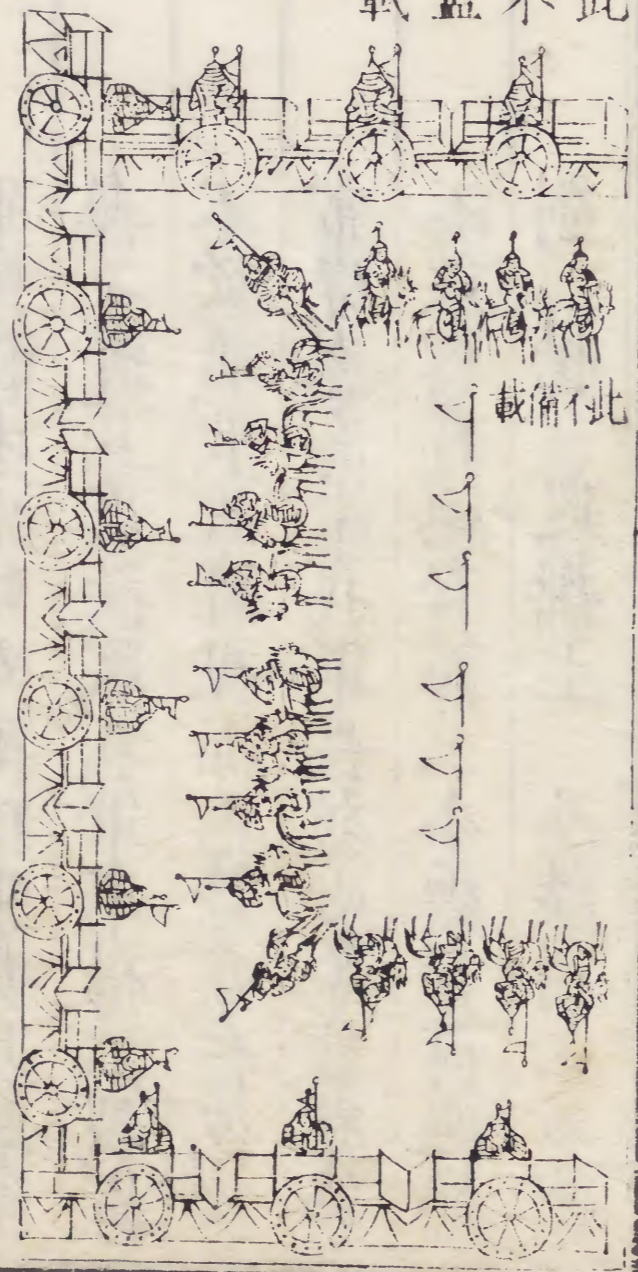 此不盡載
此不備載